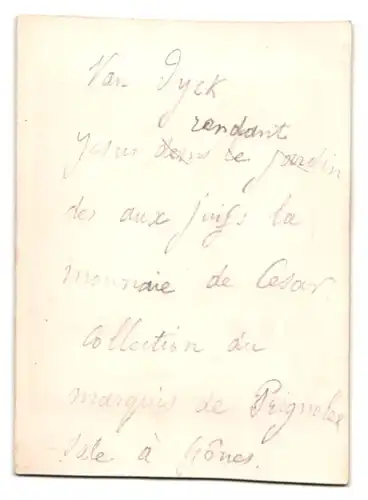 Van Dyck
rendant
Jesus dans le jardin
des aux juifs la
monnaie de Cesar.
Collection du
marquis de Brignole
Sale à Gênes.